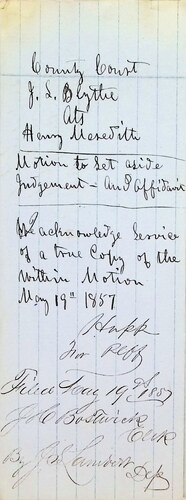 County Court
J. S. Blythe
Ats
Henry Meredith
Motion to Set aside
Judgement - And Affidavit
We acknowledge Service
of a true Copy of the
Within Motion
May 19th 1857
Hupp
For Plff
Filed May 19th 1857
J C Bostwick
Clerk
By J S Lambert
Dep